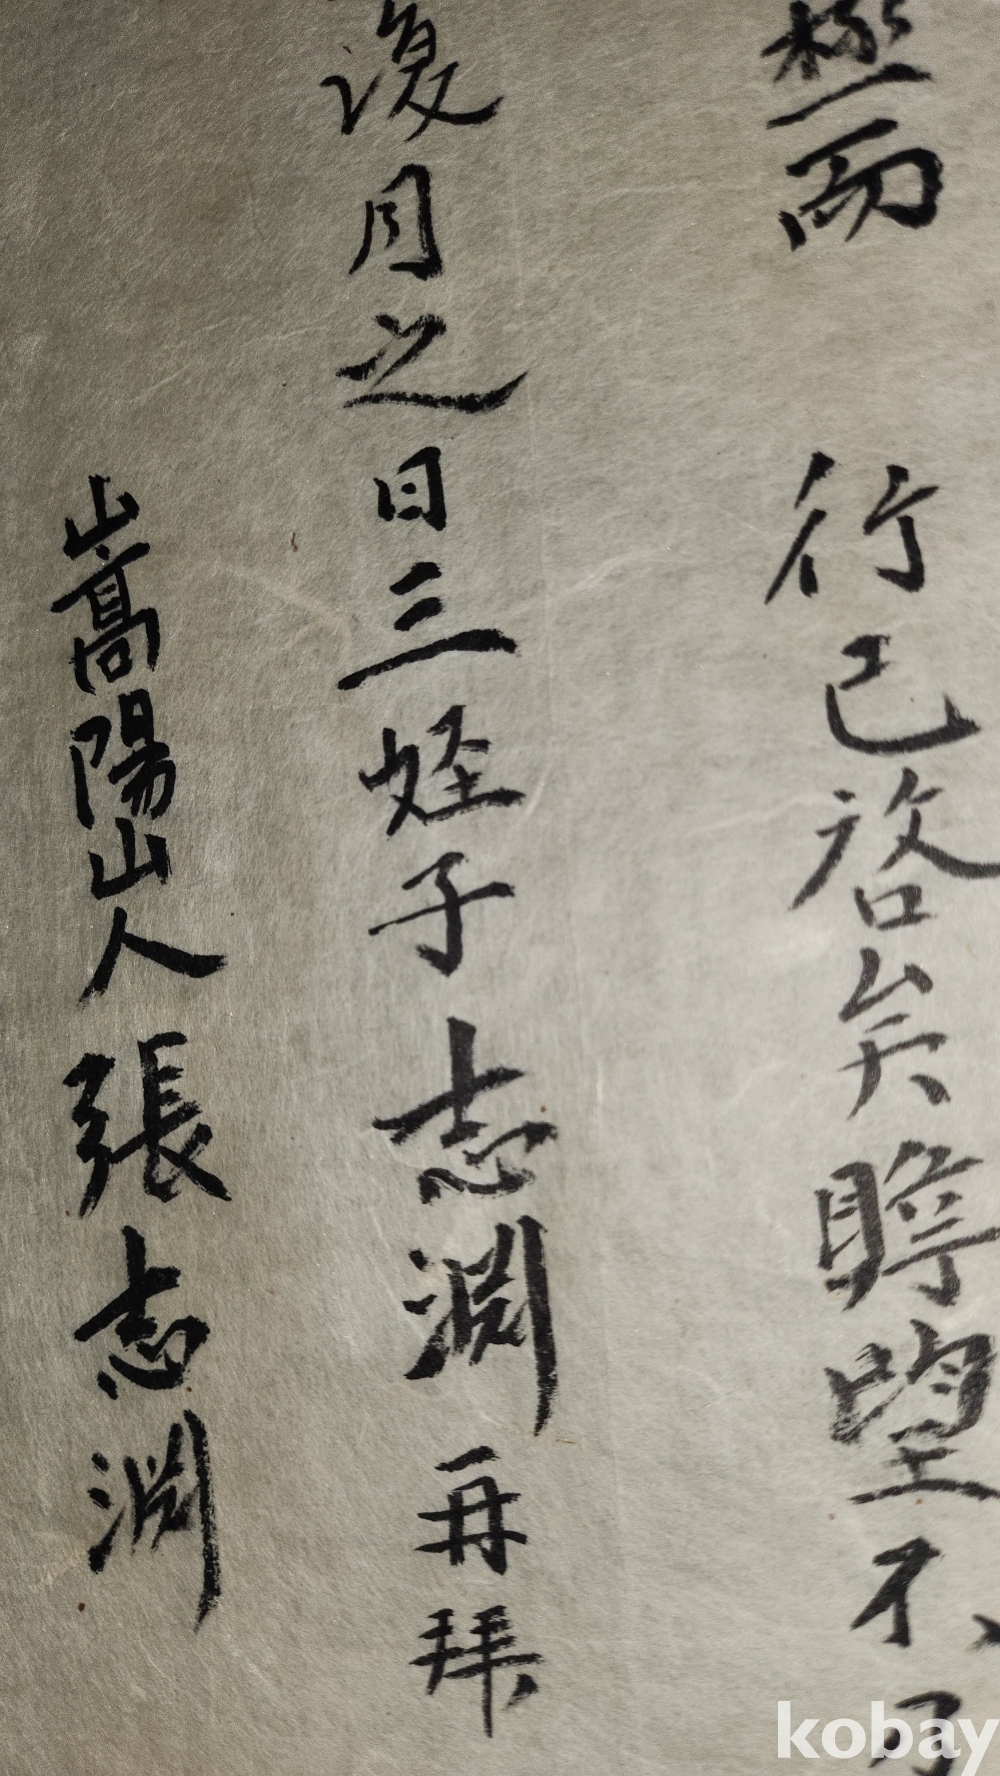 極而 行已啓矣瞻望不可
復月之日三姪子志淵再拜
嵩陽山人張志淵
kobay